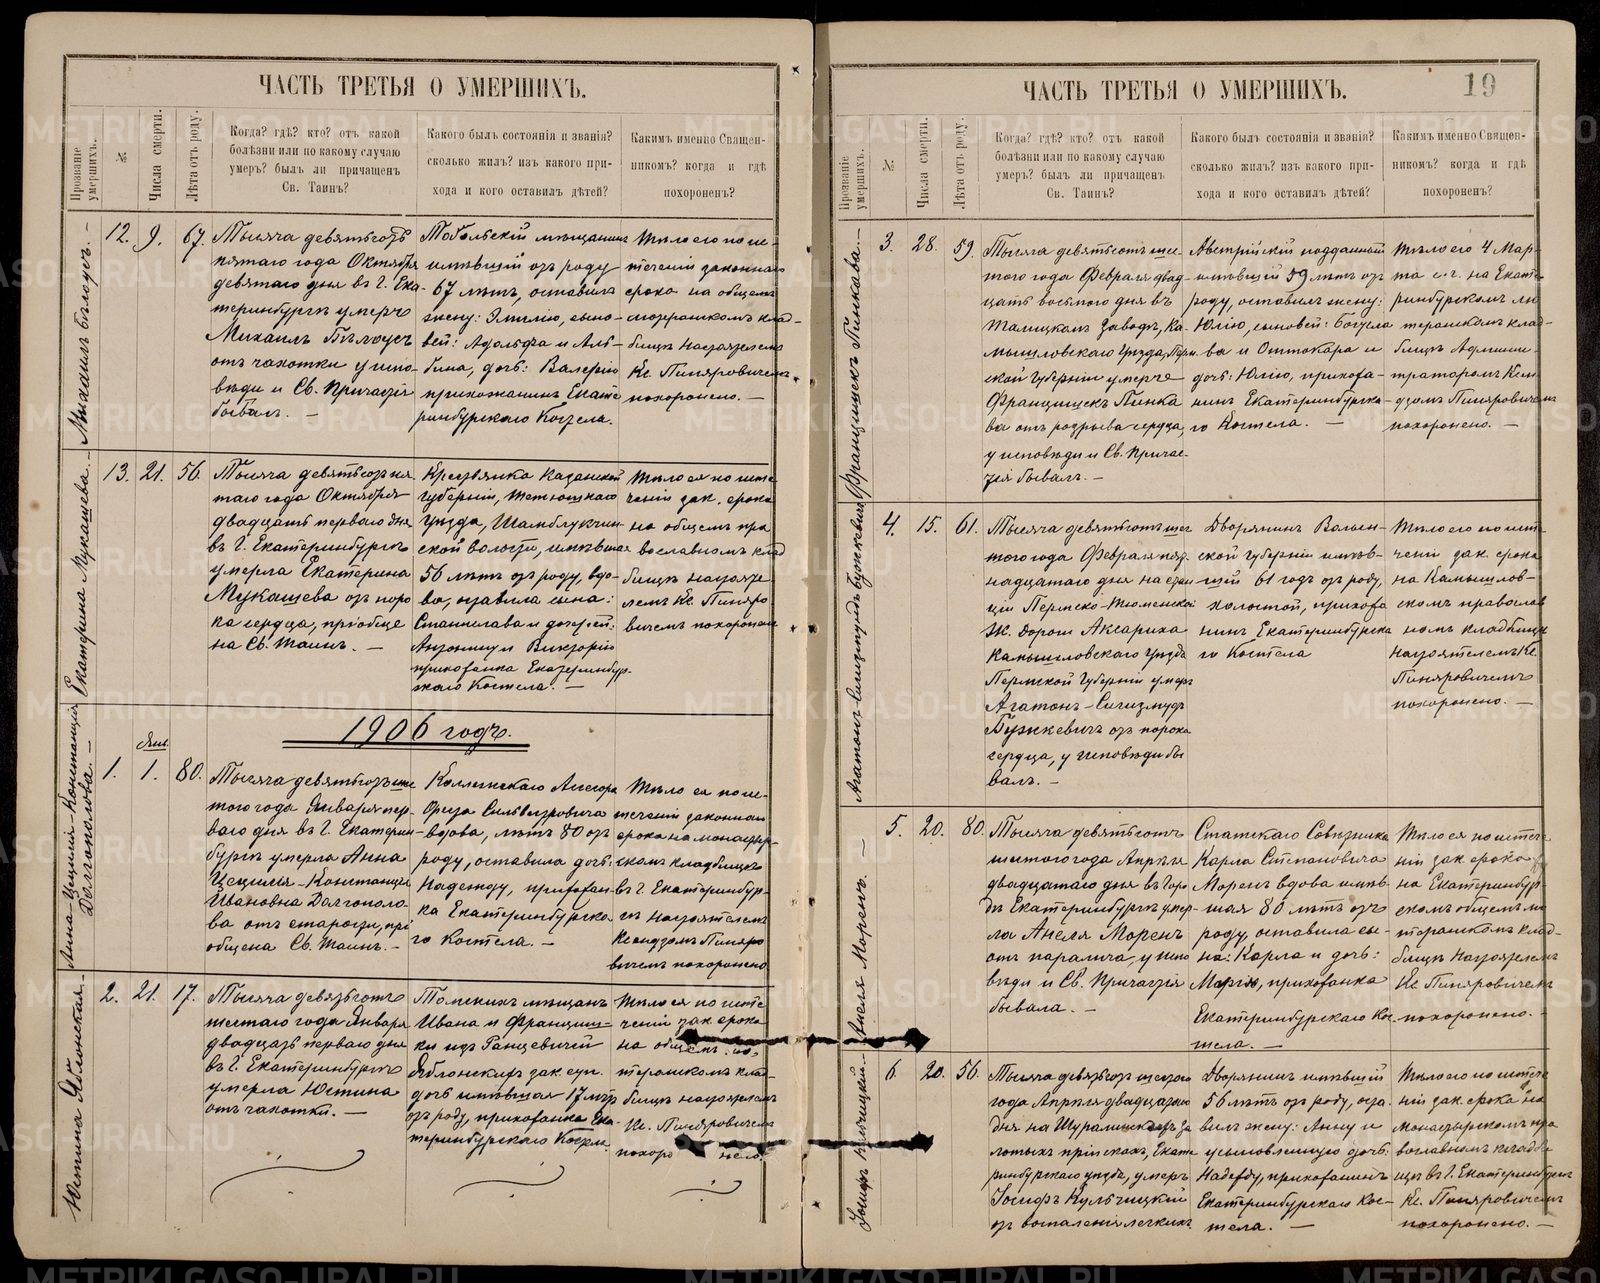 ЧАСТЬ ТРЕТЬЯ О УМЕРШИХЪ.
Прозваніе умершихъ.
№
Числа смерти.
Лѣта отъ роду.
Когда? гдѣ? кто? отъ какой
болѣзни или по какому случаю
умеръ? былъ ли причащенъ
Св. Таинъ?
Какого былъ состоянія и званія?
сколько жилъ? изъ какого при-
хода и кого оставилъ дѣтей?
Какимъ именно Священ-
никомъ? когда и гдѣ
похороненъ?
Михаилъ Бѣлоусъ. —
12.
9.
67.
Тысяча девятьсотъ
пятаго года Октября
девятаго дня въ г. Ека-
теринбургѣ умеръ
Михаилъ Бѣлоусъ
отъ чахотки у испо-
вѣди и Св. Причастія
бывалъ. —
Тобольскій мѣщанинъ
имѣвшій отъ роду
67 лѣтъ, оставилъ
жену: Эмилію, сыно-
вей: Адольфа и Аль-
бина, дочь: Валерію
прихожанинъ Екате
ринбургскаго Костела.
Тѣло его по ис-
теченіи законнаго
срока на общемъ
лютеранскомъ клад-
бищѣ Настоятелемъ
Кс. Пиняровичемъ
похоронено. —
Екатерина Мукашева. —
13.
21.
56.
Тысяча девятьсотъ пя
таго года Октября
двадцать перваго дня
въ г. Екатеринбургѣ
умерла Екатерина
Мукашева отъ поро
ка сердца, пріобще
на Св. Таинъ. —
Крестьянка Казанской
губерніи, Тетюшскаго
уѣзда, Шамблукчин-
ской волости, имѣвшая
56 лѣтъ отъ роду, вдо-
ва, оставила сына:
Станислава и дочерей:
Антонину и Викторію
прихожанка Екатеринбур-
скаго Костела. —
Тѣло ея по исте
ченіи зак. срока
на общемъ пра
вославномъ клад
бищѣ настояте
лемъ Кс. Пиняро
вичемъ похоронено
1906 годъ.
Анна-Цецилія-Констанція
Долгополова. —
1.
Янв.
1.
80.
Тысяча девятьсотъ ше
стого года Января пер-
ваго дня въ г. Екатерин
бургѣ умерла Анна
Цецилія-Констанція
Ивановна Долгополо-
ва отъ старости, прі
общена Св. Таинъ. —
Коллежскаго Ассесора
вдова, лѣтъ 80 отъ
роду, оставила дочь:
Надежду, прихожан-
ка Екатеринбургска
го Костела. —
Тѣло ея по ис-
теченіи законнаго
срока на монастыр-
скомъ кладбищѣ
въ г. Екатеринбур-
гѣ настоятелемъ
Ксендзомъ Пиняро
вичемъ похоронено
Юстина Яблонская. —
2.
21.
17.
Тысяча девятьсотъ
шестаго года Января
двадцать перваго дня
въ г. Екатеринбургѣ
умерла Юстина
отъ чахотки. —
Томскихъ мѣщанъ
Ивана и Францишки
изъ Ганцевичей
Яблонскихъ зак. суп.
дочь имѣвшая 17 лѣтъ
отъ роду, прихожанка Ека
теринбургскаго Костела.
Тѣло ея по исте
ченіи зак. срока
на общемъ лю-
теранскомъ клад
бищѣ настоятелемъ
Кс. Пиняровичемъ
похоронено.
19
ЧАСТЬ ТРЕТЬЯ О УМЕРШИХЪ.
Прозваніе умершихъ.
№
Числа смерти.
Лѣта отъ роду.
Когда? гдѣ? кто? отъ какой
болѣзни или по какому случаю
умеръ? былъ ли причащенъ
Св. Таинъ?
Какого былъ состоянія и званія?
сколько жилъ? изъ какого при-
хода и кого оставилъ дѣтей?
Какимъ именно Священ-
никомъ? когда и гдѣ
похороненъ?
Францишекъ Пинкава. —
3.
28.
59.
Тысяча девятьсотъ ше-
стого года Февраля двад-
цать восьмого дня въ
Талицкомъ Заводѣ, Ка-
мышловскаго уѣзда, Перм-
ской губерніи умеръ
Францишекъ Пинка
ва отъ разрыва сердца,
у исповѣди и Св. Причас-
тія бывалъ. —
Австрійскій подданный
имѣвшій 59 лѣтъ отъ
роду, оставилъ жену:
Юлію, сыновей: Богусла
ва и Оттокара и
дочь: Юлію, прихожа-
нинъ Екатеринбургска-
го Костела. —
Тѣло его 4 Мар-
та с.г. на Екате-
ринбургскомъ лю
теранскомъ клад-
бищѣ Админис-
траторомъ Ксен
дзомъ Пиняровичемъ
похоронено. —
Агатонъ-Сигизмундъ Бужкевичъ
4.
15.
61.
Тысяча девятьсотъ шес
того года Февраля пят-
надцатаго дня на стан
ціи Пермско-Тюменской
Ж. Дороги Аксариха
Камышловскаго уѣзда
Пермской губерніи умеръ
Агатонъ-Сигизмундъ
Бужкевичъ отъ порока
сердца, у исповѣди бы
валъ. —
Дворянинъ Волын-
ской губерніи имѣв-
шій 61 годъ отъ роду,
холостой, прихожа
нинъ Екатеринбургска
го Костела
Тѣло его по исте-
ченіи зак. срока
на Камышлов-
скомъ православ
номъ кладбищѣ
Настоятелемъ Кс.
Пиняровичемъ
похоронено. —
Анеля Моренъ. —
5.
20.
80.
Тысяча девятьсотъ
шестого года Апрѣля
двадцатаго дня въ горо
дѣ Екатеринбургѣ умер-
ла Анеля Моренъ
отъ паралича, у испо
вѣди и Св. Причастія
бывала. —
Статскаго Совѣтника
Карла Степановича
Моренъ вдова имѣв-
шая 80 лѣтъ отъ
роду оставила сы-
на: Карла и дочь:
Марію, прихожанка
Екатеринбургскаго Кос-
тела. —
Тѣло ея по истече
ніи зак. срока
на Екатеринбур-
скомъ общемъ лю
теранскомъ клад-
бищѣ Настоятелемъ
Кс. Пиняровичемъ
похоронено. —
Іосифъ Кульчицкій. —
6.
20.
56.
Тысяча девятьсотъ шестого
года Апрѣля двадцатаго
дня на Шуралинскихъ зо
лотыхъ пріискахъ, Екате
ринбургскаго уѣзда, умеръ
Іосифъ Кульчицкій
отъ воспаленія легкихъ
Дворянинъ имѣвшій
56 лѣтъ отъ роду, оста
вилъ жену: Анну и
усыновленную дочь:
Надежду, прихожанинъ
Екатеринбургскаго Кос-
тела. —
Тѣло его по истече
ніи зак. срока на
монастырскомъ пра
вославномъ кладби
щѣ въ г. Екатеринбургѣ
Кс. Пиняровичемъ
похоронено. —
METRIKI.GASO-URAL.RU